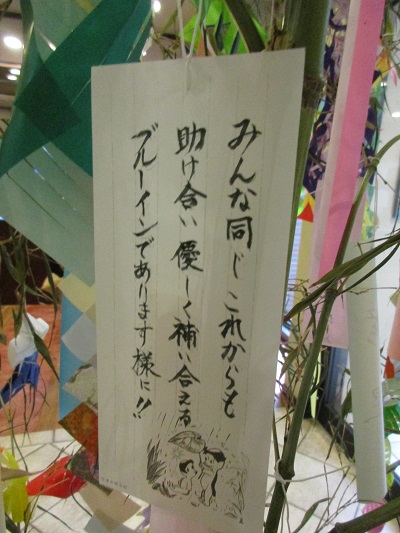 みんな同じ これからも
助け合い 優しく補い合える
ブルーインであります様に!!